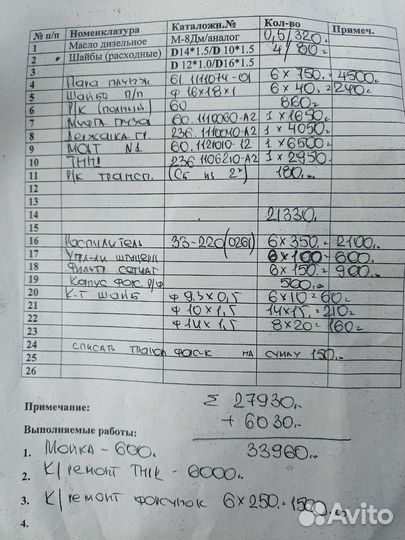 № п/п Номенклатура Каталожн.№ Кол-во Примеч.
1 Масло дизельное М-8Дм/аналог 0,5/320.
2 Шайбы (расходные) D14*1.5/D 10*1.5 4/80=
3 D 12*1.0/D16*1.5
4 Пара плунж. 61.1111074-01 6×750.= 4500.
5 Шайба п/п ф 16х18х1 6×40.= 240=
6 Р/к (полный) 60 860=
7 Муфта груза 60.1110060-А2 1×1650.
8 236.1110040-А2 1×4050.
9 МОПТ №1 60.1121010-12 1×6500=
10 ТННД 236.1106210-А2 1×2950.
11 Р/к трансп. (С5 из 2х) 180.
12
13
14 21330.
15
16 Распылитель 33-220(0261) 6×350.= 2100.
17 6×100= 600.
18 Фильтр сетчат 6×150.= 900.
19 Конус фок. р/ф 500.=
20 К-т шайб ф 9.3×0,5 6×10=60=
21 ф 10×1,5 14×15.=210=
22 ф 14×1,5 8×20=160=
23
24 списать на сумму 150.=
25
26
Примечание: Σ 27930.
+ 6030.=
Выполняемые работы: 33960.
1. Мойка - 600.
2. К/ремонт ТНК - 6000.=
3. К/ремонт форсунок 6×250.=1500.
4.
Avito